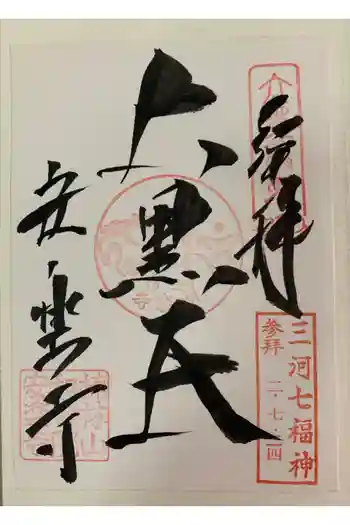 奉拝
三河七福神
参拝 二・七・二四
大黒天
安楽寺